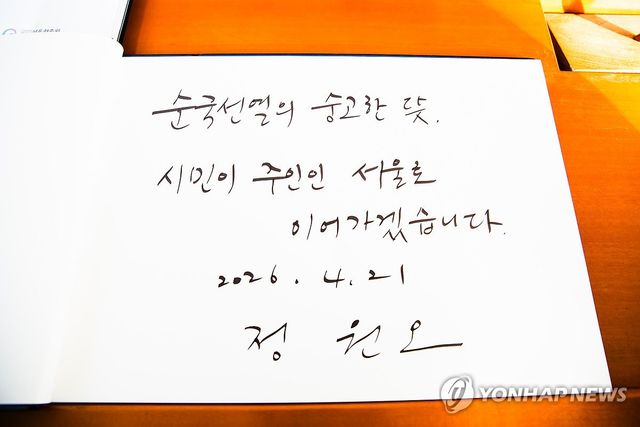 순국선열의 숭고한 뜻.
시민이 주인인 서울로
이어가겠습니다.
2026. 4. 21
정 원오
YONHAP NEWS